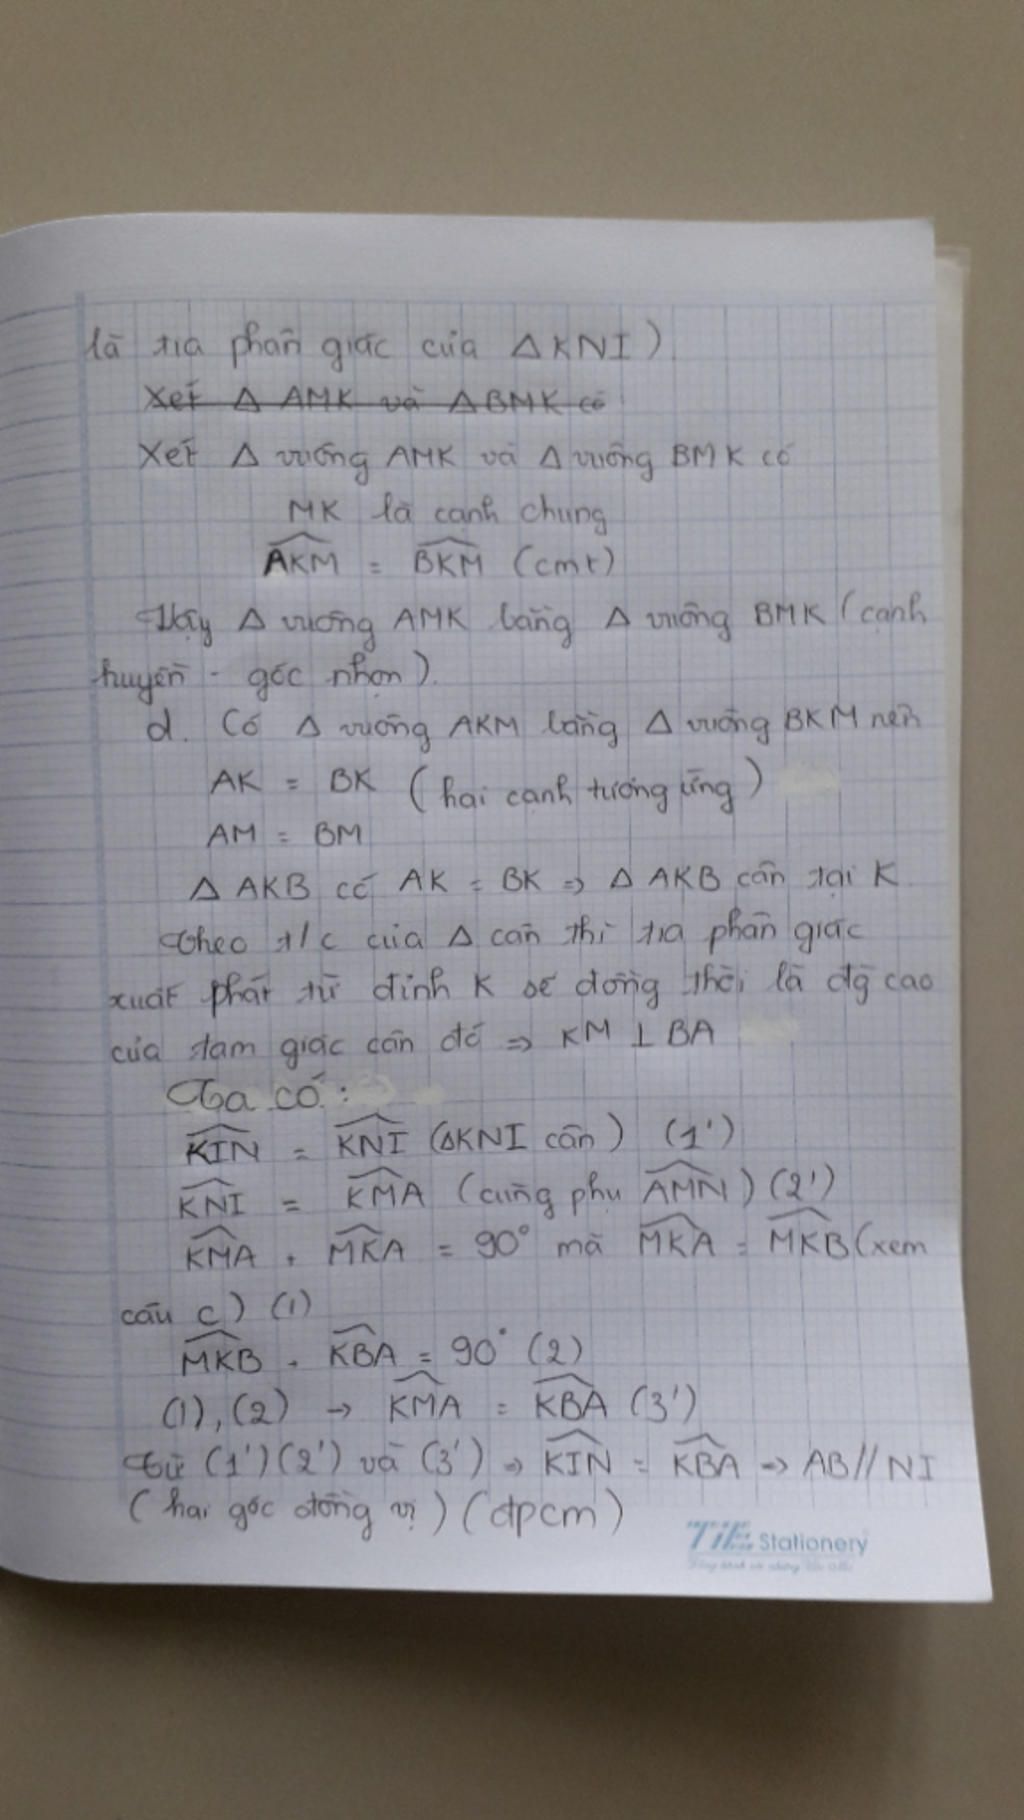 là tia phân giác của ΔKNI)
Xét Δ AMK và ΔBMK có
Xét Δ vuông AMK và Δ vuông BMK có
MK là cạnh chung
AKM = BKM (cmt)
Vậy Δ vuông AMK bằng Δ vuông BMK (cạnh
huyền - góc nhọn).
d. Có Δ vuông AKM bằng Δ vuông BKM nên
AK = BK (hai cạnh tương ứng)
AM = BM
Δ AKB có AK = BK => Δ AKB cân tại K.
Theo t/c của Δ cân thì tia phân giác
xuất phát từ đỉnh K sẽ đồng thời là đg cao
của tam giác cân đó => KM ⊥ BA
Ta có:
KIN = KNI (ΔKNI cân) (1')
KNI = KMA (cùng phụ AMN) (2')
KMA + MKA = 90° mà MKA = MKB (xem
câu c) (1)
MKB + KBA = 90° (2)
(1), (2) → KMA = KBA (3')
Từ (1') (2') và (3') => KIN = KBA → AB // NI
(hai góc đồng vị) (đpcm)
TiE Stationery